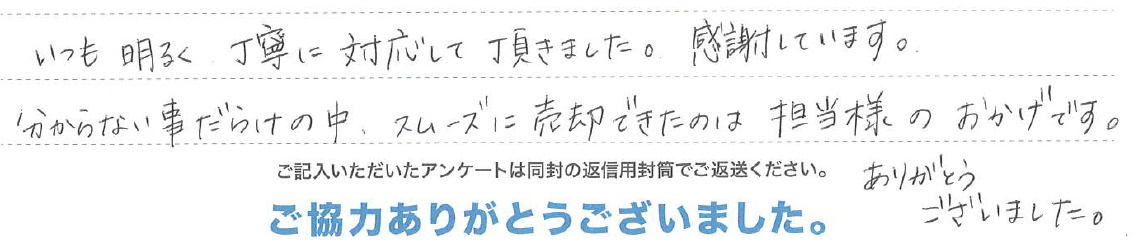 いつも明るく、丁寧に対応して頂きました。感謝しています。
分からない事だらけの中、スムーズに売却できたのは担当様のおかげです。
ご記入いただいたアンケートは同封の返信用封筒でご返送ください。
ありがとう
ございました。
ご協力ありがとうございました。